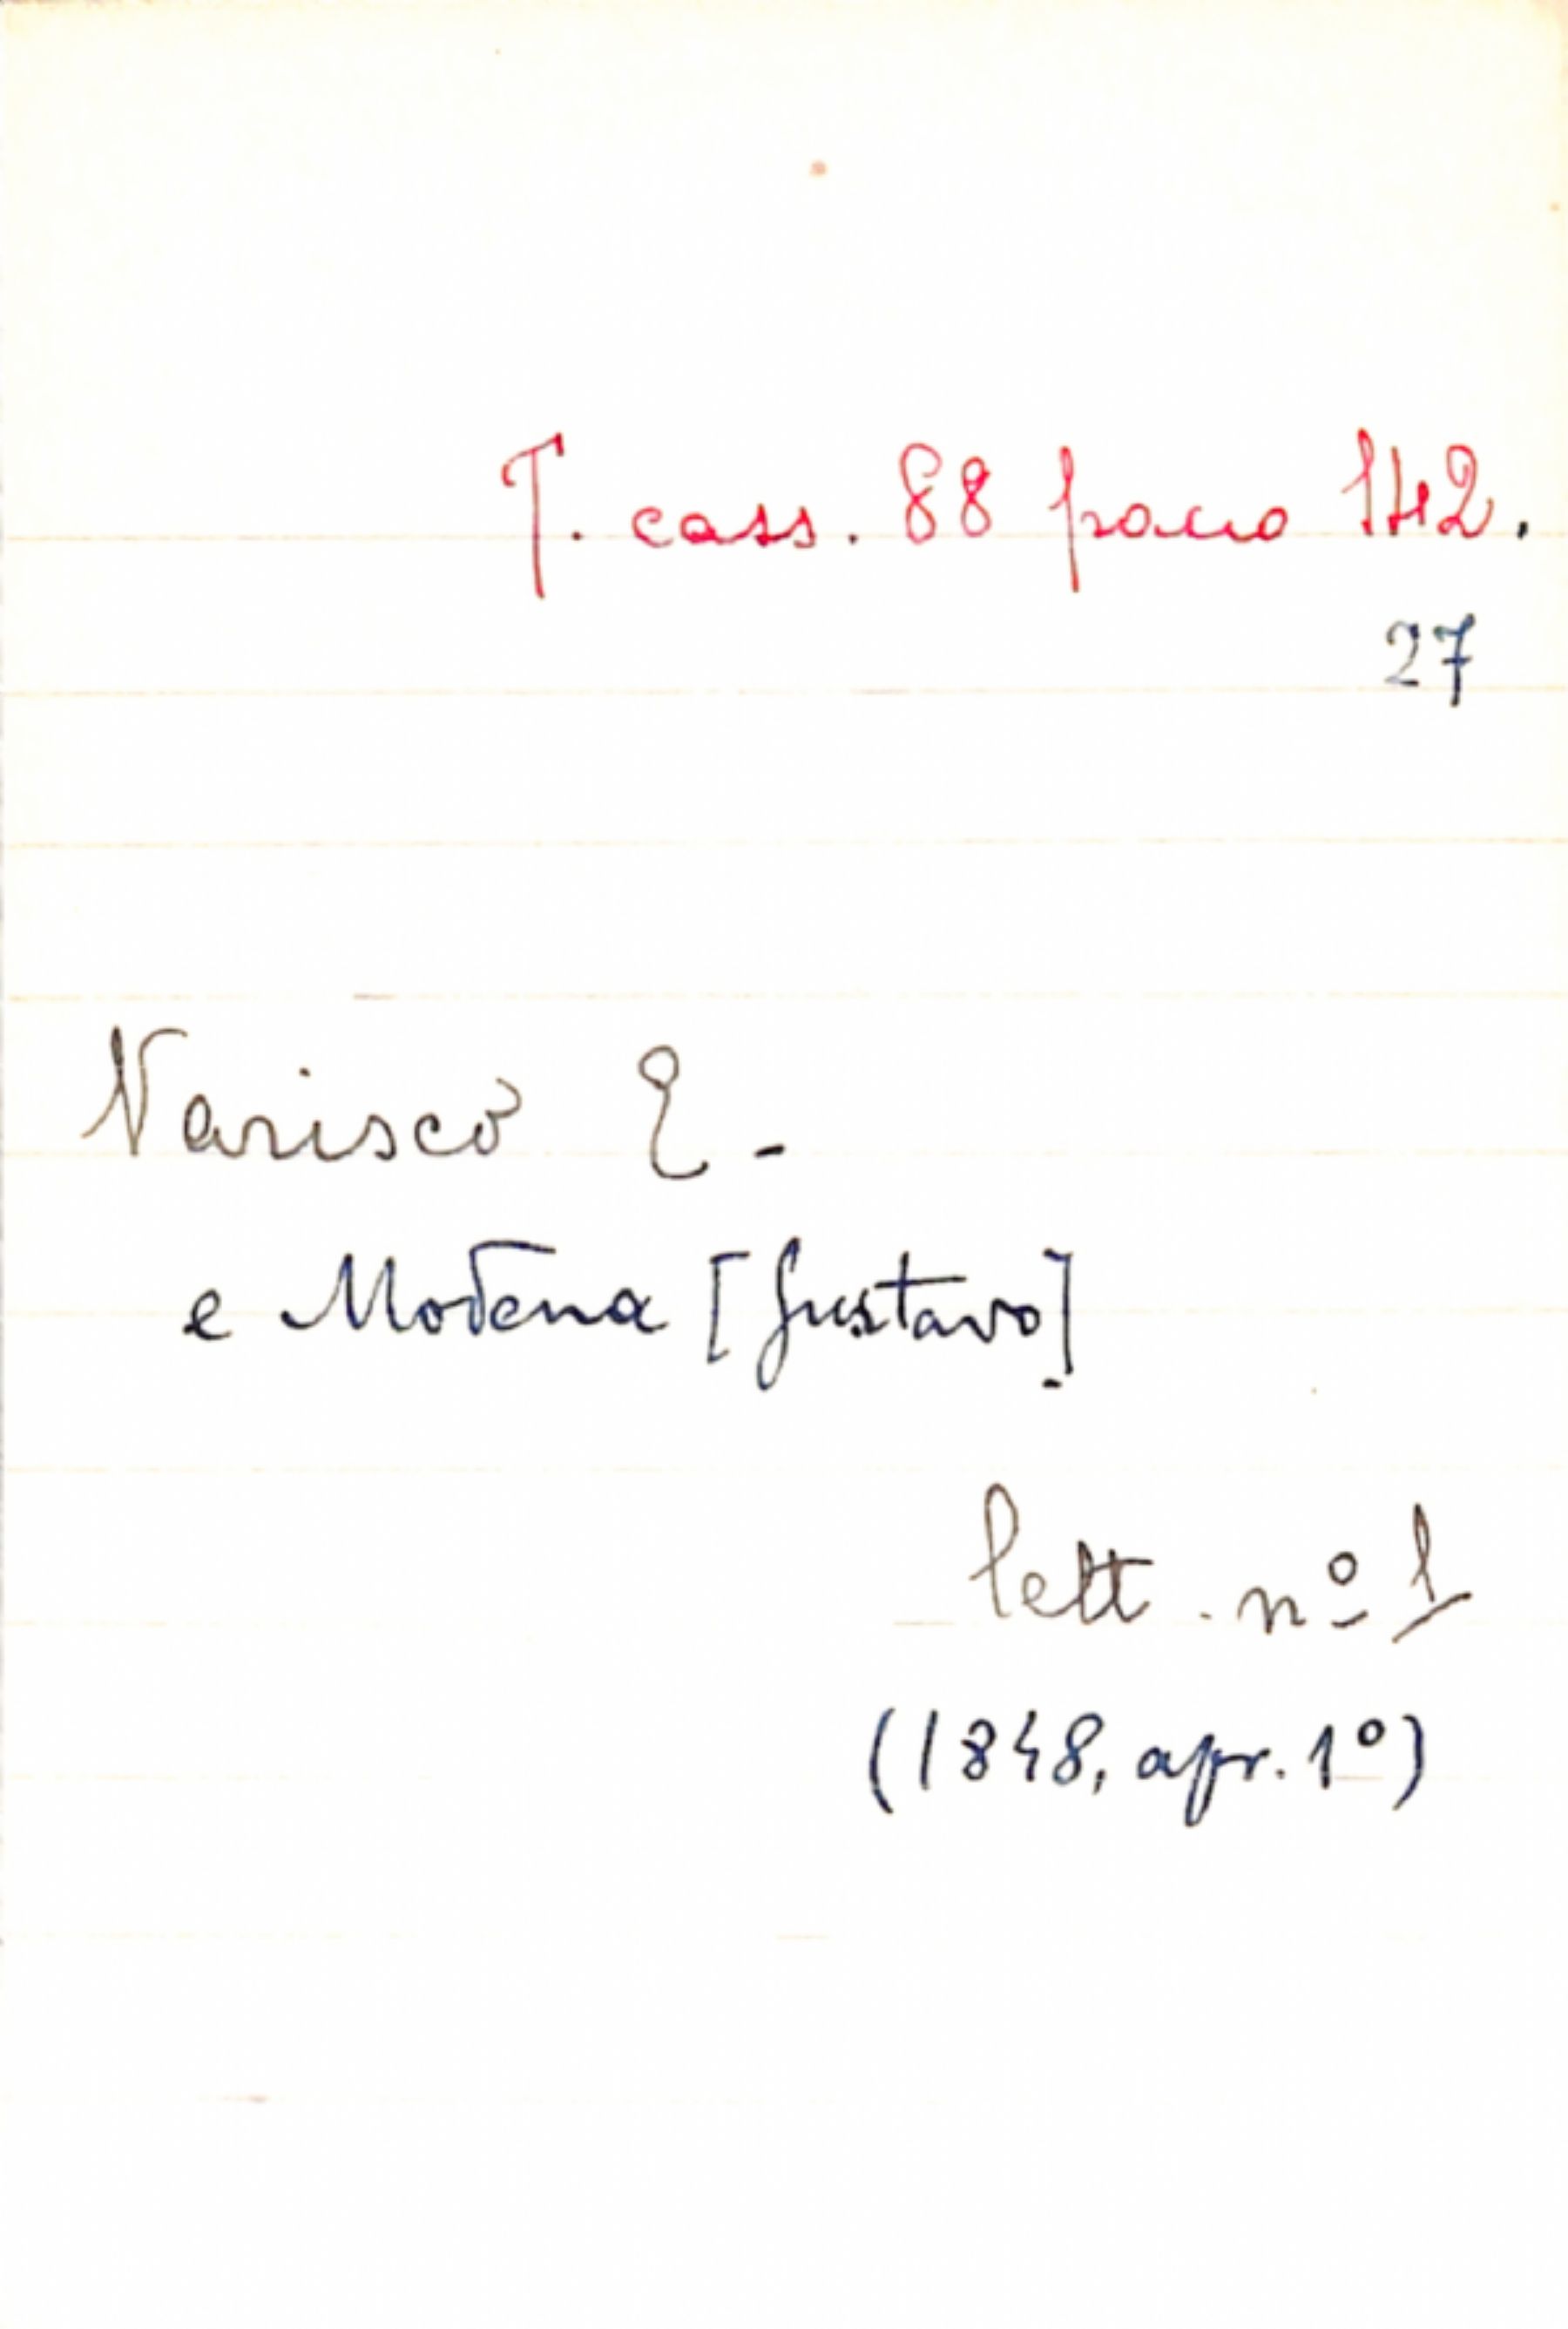 T. cass. 88 pacco 142.
27
Varisco E.
e Modena [Gustavo]
lett. nº 1
(1848, apr. 1º)